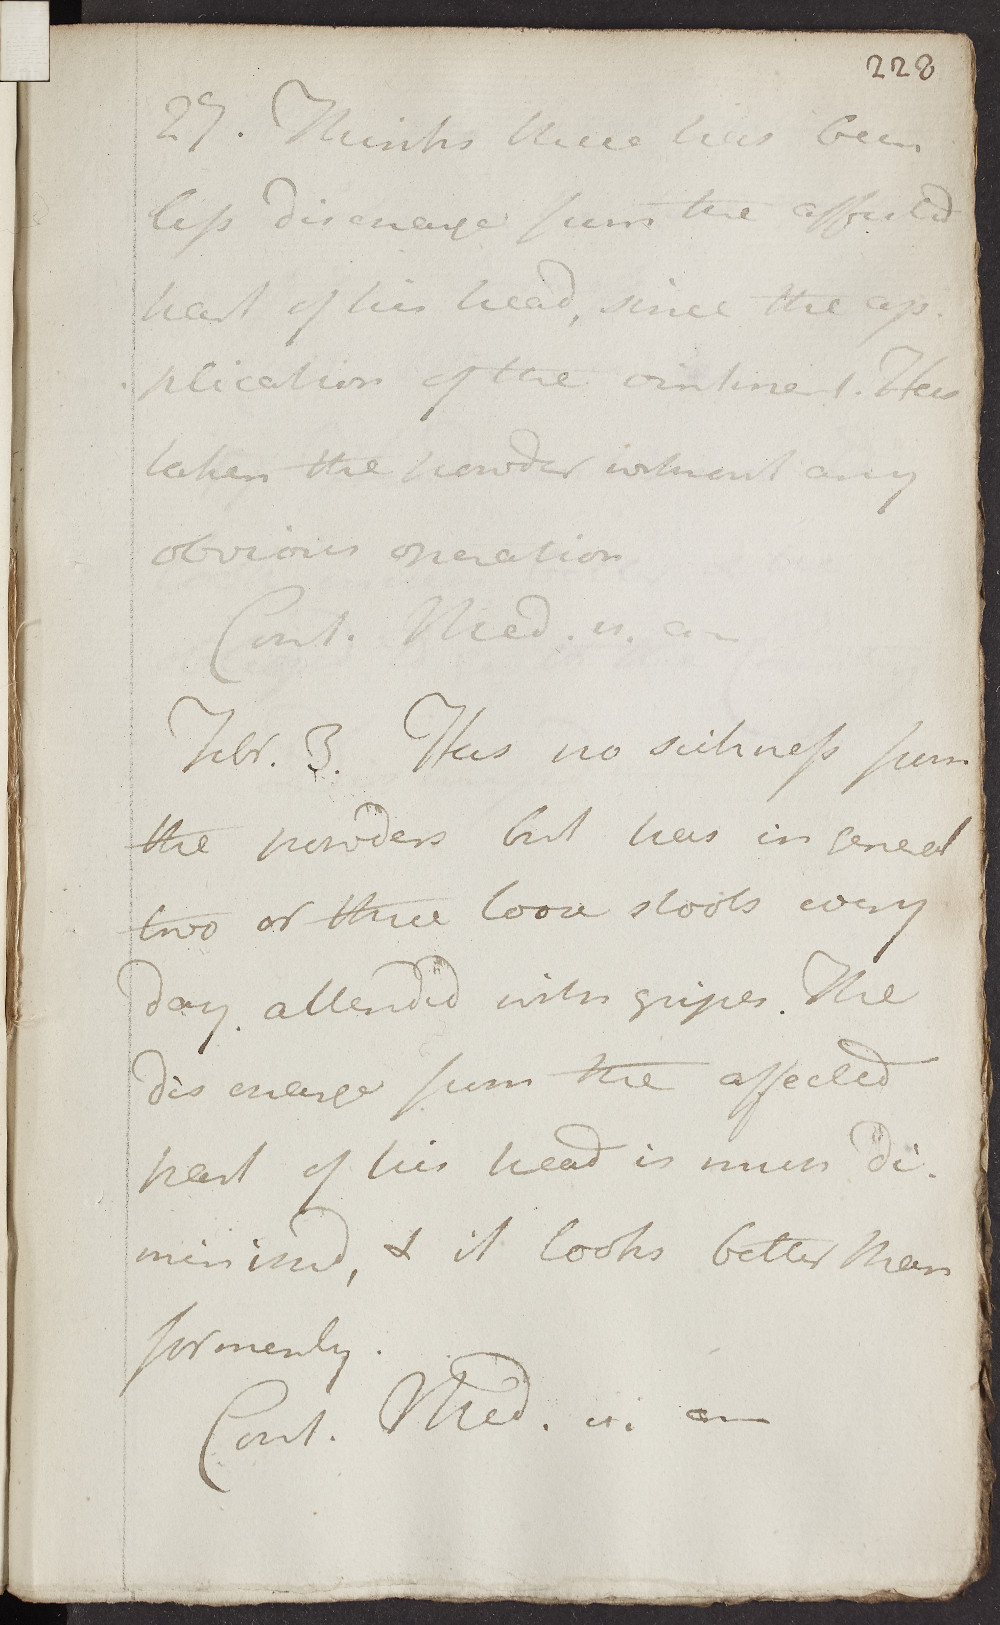 228
27. Thinks there has been
less discharge from the affected
part of his head, since the ap-
plication of the ointment. Has
taken the powder without any
obvious operation
Cont. Med. u. a
Febr. 3. Has no sickness from
the powders but has in general
two or three loose stools every
day, attended with gripes. The
discharge from the affected
part of his head is much di-
minished, & it looks better than
formerly.
Cont. Med. u.